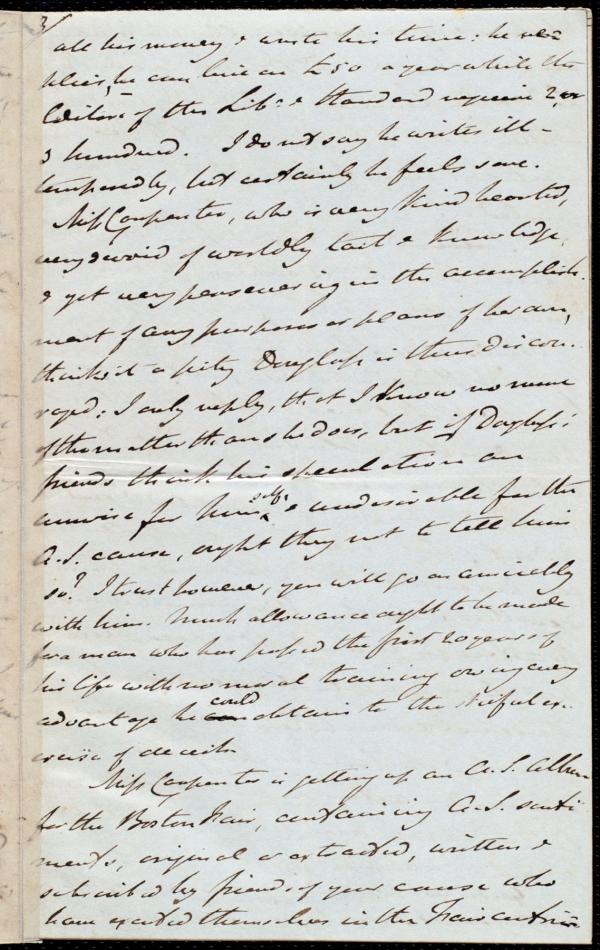 3/
all his money & waste his time: he re-
plies, he can live on £50 a year while the
Editors of the Lib: & Standard require 2, or
3 hundred. I do not say he writes ill-
temperedly, but certainly he feels sore.
Miss Carpenter, who is very kind hearted,
very devoid of worldly tact & knowledge,
& yet very persevering in the accomplish-
ment of any purposes or plans of her own,
thinks it a pity Douglass is thus discou-
raged: I only reply, that I know no more
of the matter than she does, but if Douglass'
friends think his speculation an
unwise for himself, & undesirable for the
A.S. cause, ought they not to tell him
so? I trust however, you will go on amicably
with him. Much allowance ought to be made
for a man who has passed the first 20 years of
his life with no moral training owing every
advantage he could obtain to the skilful ex-
ercise of deceit.
Miss Carpenter is getting up an A.S. Album
for the Boston Fair, containing A.S. senti
ments, original or extracted, written &
subscribed by friends of your cause who
have exerted themselves in the Fair contri